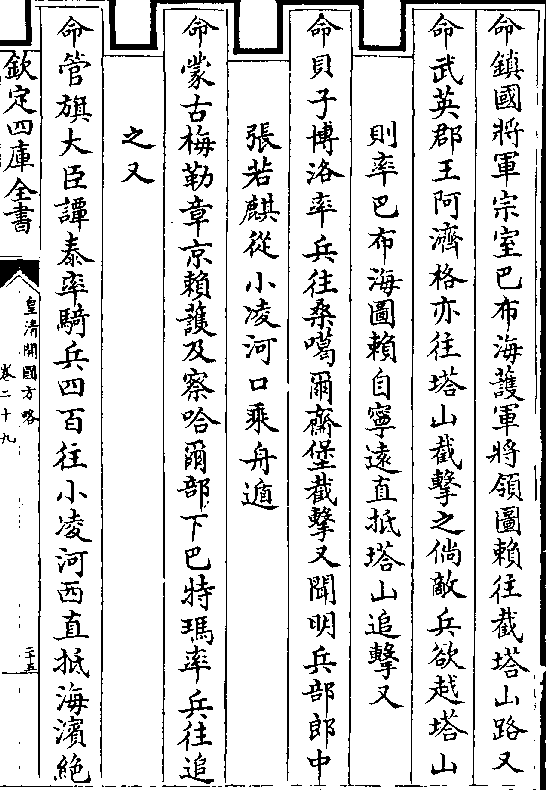 命鎮國將軍宗室巴布海䕶軍將領圖賴往截塔山路又
命武英郡王阿濟格亦往塔山截擊之倘敵兵欲越塔山
則率巴布海圖賴自寧遠直抵塔山追擊又
命貝子博洛率兵往桑噶爾齋堡截擊又聞明兵部郎中
張若麒從小凌河口乘舟遁
命蒙古梅勒章京賴䕶及察哈爾部下巴特瑪率兵往追
之又
命管旗大臣譚泰率騎兵四百往小凌河西直抵海濱絶
欽定四庫全書
皇清開國方略
卷二十九
二十五